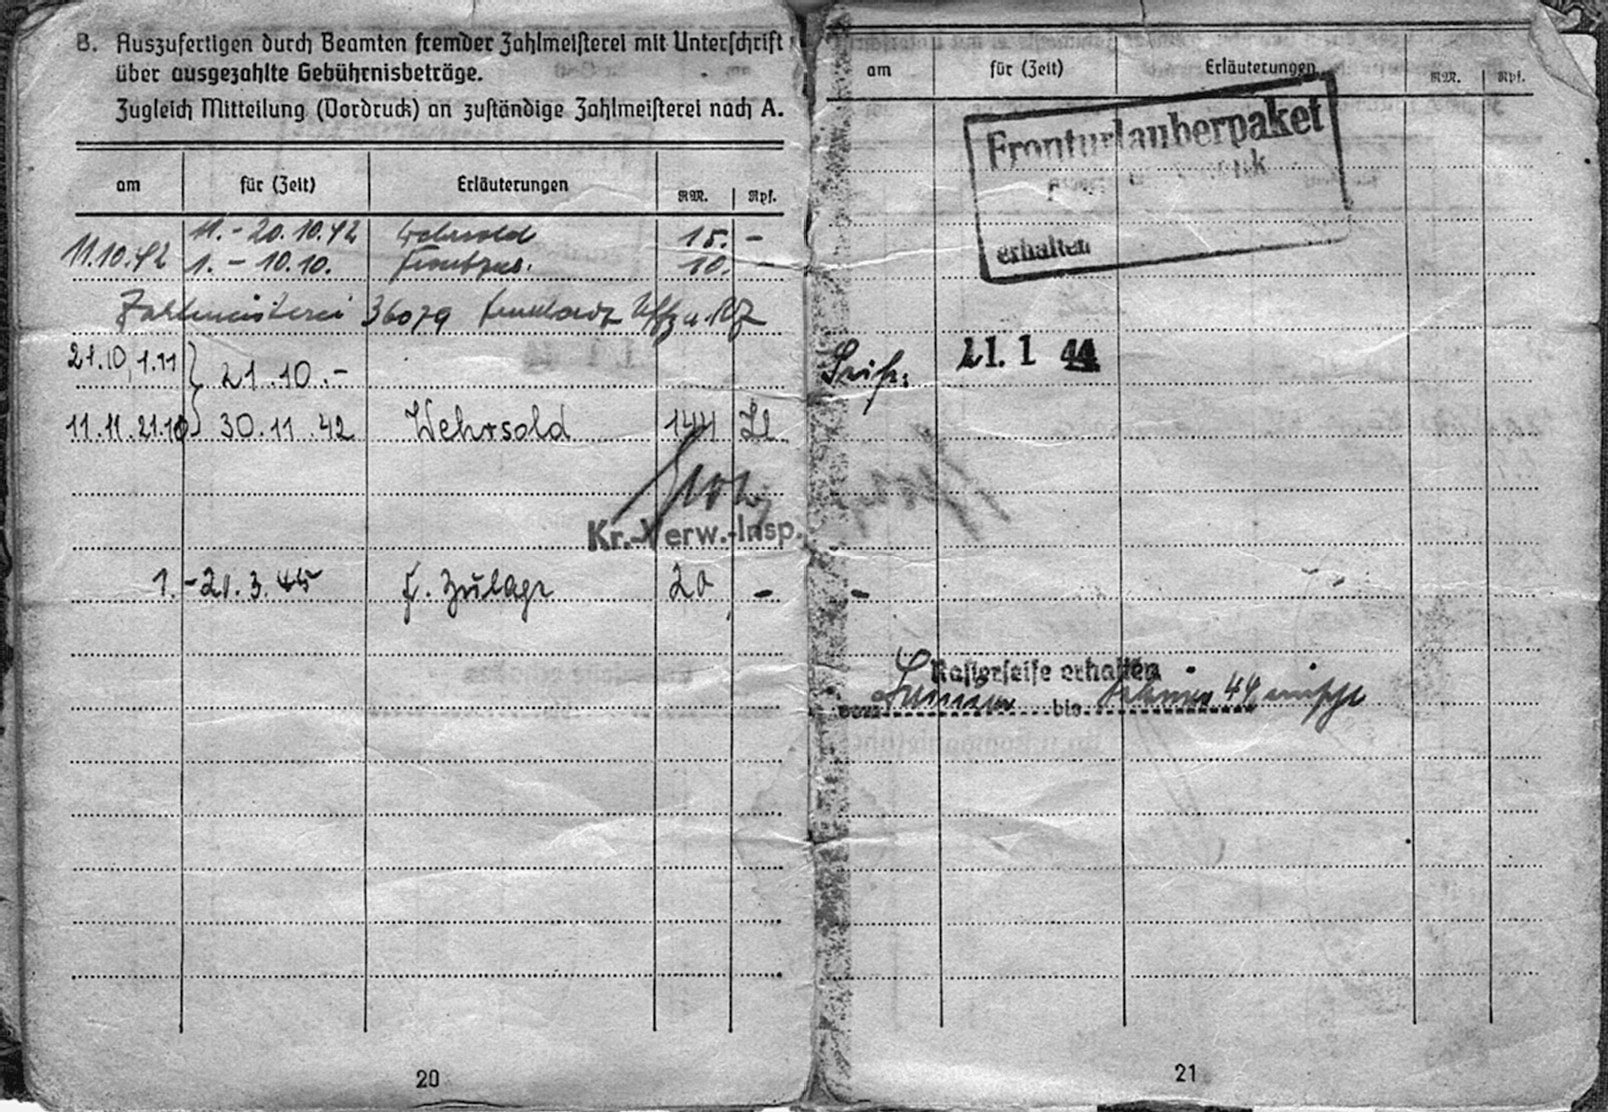 B. Auszufertigen durch Beamten fremder Zahlmeisterei mit Unterschrift
über ausgezahlte Gebührnisbeträge.
Zugleich Mitteilung (Vordruck) an zuständige Zahlmeisterei nach A.
am für (Zeit) Erläuterungen RM. Rpf.
11.-20.10.42 Wehrsold 15. -
11.10.42 1. - 10.10. Frontzul. 10. -
Zahlmeisterei 36079 Uffz u. RZ
21.10, 1.11 } 21.10.-
11.11. 21.10 30.11.42 Wehrsold 144 Zl
Kr.-Verw.-Insp.
1. -21.3.45 F. Zulage 20, -
20
am für (Zeit) Erläuterungen RM. Rpf.
Fronturlauberpaket
erhalten
21. 1 44
-
Rasierseife erhalten
vom bis 44
21